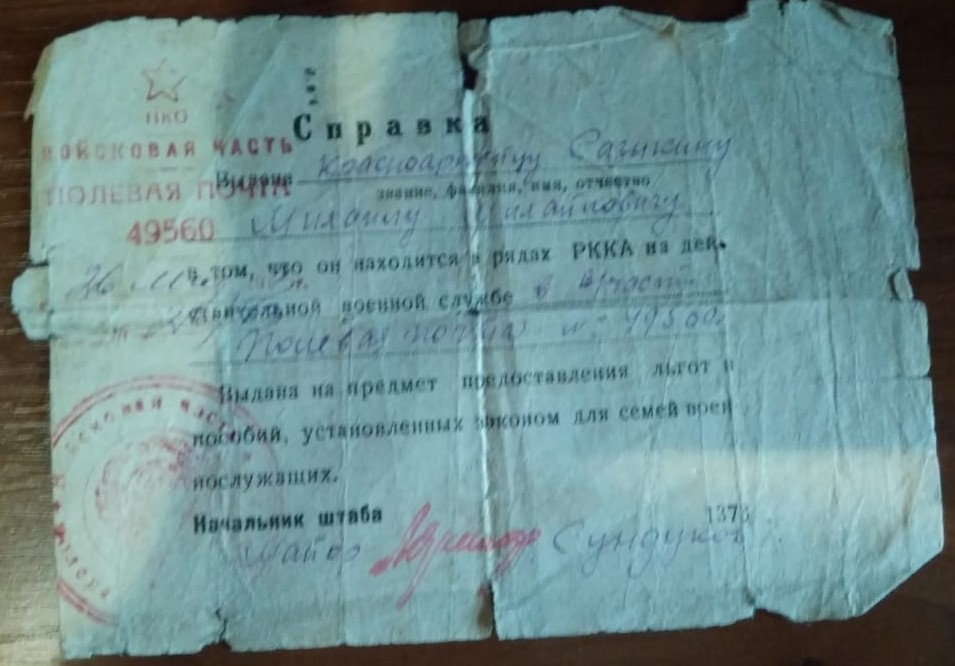 НКО
ВОЙСКОВАЯ ЧАСТЬ
ПОЛЕВАЯ ПОЧТА
49560
Справка
Выдана красноармейцу
звание, фамилия, имя, отчество
Михаилу Михайловичу
в том, что он находится в рядах РККА на дей-
ствительной военной службе в в/части
Полевая почта №
Выдана на предмет предоставления льгот и
пособий, установленных законом для семей воен
нослужащих.
Начальник штаба
137
майор Сундуков